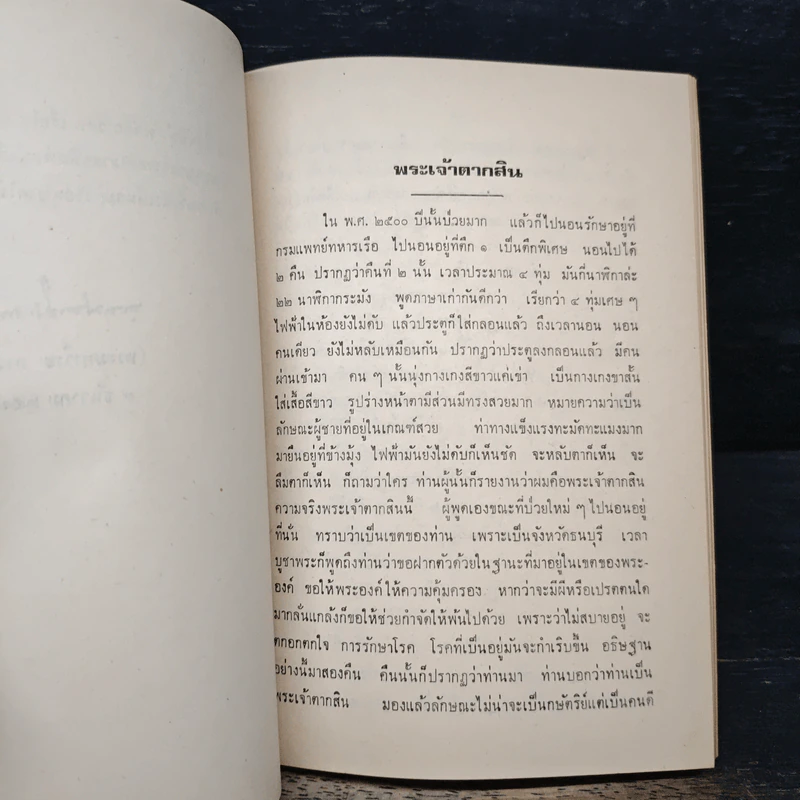 พระเจ้าตากสิน
ใน พ.ศ. ๒๕๐๐ ปีนั้นป่วยมาก แล้วก็ไปนอนรักษาอยู่ที่
กรมแพทย์ทหารเรือ ไปนอนอยู่ที่ตึก ๑ เป็นตึกพิเศษ นอนไปได้
๒ คืน ปรากฏว่าคืนที่ ๒ นั้น เวลาประมาณ ๔ ทุ่ม มันกี่นาฬิกาล่ะ
๒๒ นาฬิกากระมัง พูดภาษาเก่ากันดีกว่า เรียกว่า ๔ ทุ่มเศษ ๆ
ไฟฟ้าในห้องยังไม่ดับ แล้วประตูก็ใส่กลอนแล้ว ถึงเวลานอน นอน
คนเดียว ยังไม่หลับเหมือนกัน ปรากฏว่าประตูลงกลอนแล้ว มีคน
ผ่านเข้ามา คน ๆ นั้นนุ่งกางเกงสีขาวแค่เข่า เป็นกางเกงขาสั้น
ใส่เสื้อสีขาว รูปร่างหน้าตามีส่วนมีทรงสวยมาก หมายความว่าเป็น
ลักษณะผู้ชายที่อยู่ในเกณฑ์สวย ท่าทางแข็งแรงทะมัดทะแมงมาก
มายืนอยู่ที่ข้างมุ้ง ไฟฟ้ามันยังไม่ดับก็เห็นชัด จะหลับตาก็เห็น จะ
ลืมตาก็เห็น ก็ถามว่าใคร ท่านผู้นั้นก็รายงานว่าผมคือพระเจ้าตากสิน
ความจริงพระเจ้าตากสินนี้ ผู้พูดเองขณะที่ป่วยใหม่ ๆ ไปนอนอยู่
ที่นั่น ทราบว่าเป็นเขตของท่าน เพราะเป็นจังหวัดธนบุรี เวลา
บูชาพระก็พูดถึงท่านว่าขอฝากตัวด้วยในฐานะที่มาอยู่ในเขตของพระ-
องค์ ขอให้พระองค์ให้ความคุ้มครอง หากว่าจะมีผีหรือเปรตตนใด
มากลั่นแกล้งก็ขอให้ช่วยกำจัดให้พ้นไปด้วย เพราะว่าไม่สบายอยู่ จะ
ตกอกตกใจ การรักษาโรค โรคที่เป็นอยู่มันจะกำเริบขึ้น อธิษฐาน
อย่างนี้มาสองคืน คืนนั้นก็ปรากฏว่าท่านมา ท่านบอกว่าท่านเป็น
พระเจ้าตากสิน มองแล้วลักษณะไม่น่าจะเป็นกษัตริย์แต่เป็นคนดี